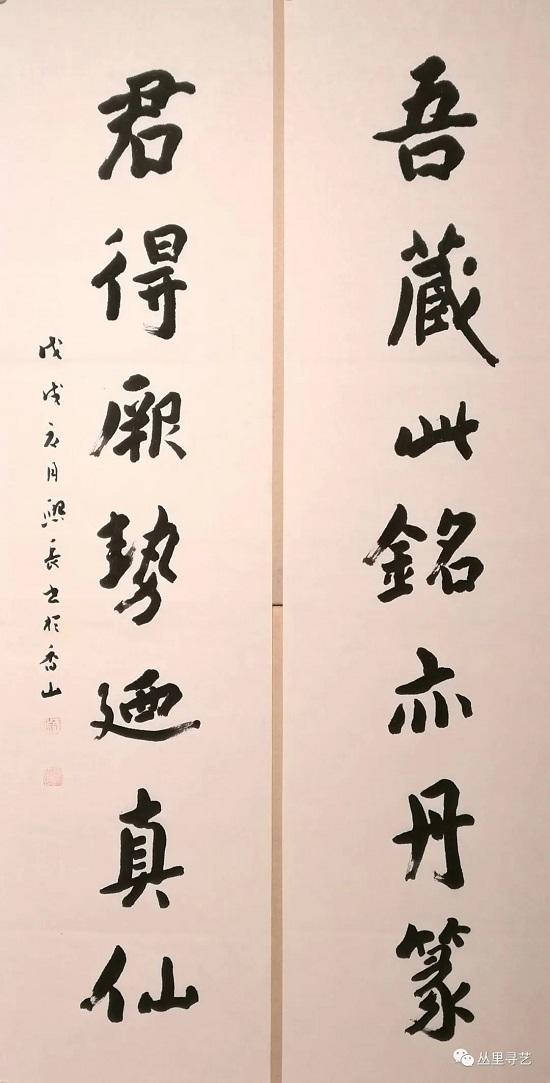 吾藏此銘亦丹篆
君得厥勢廼真仙
戊戌月長書於香山
丛里寻艺